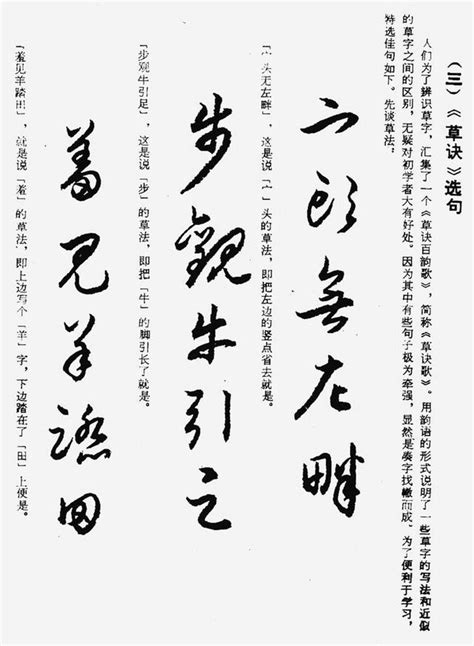 （三）《草诀》选句
人们为了辨识草字，汇集了一个《草诀百韵歌》，简称《草诀歌》。用韵语的形式说明了一些草字的写法和近似
的草字之间的区别，无疑对初学者大有好处。因为其中有些句子极为牵强，显然是凑字找辙而成，为了便利于学习，
特选佳句如下。先谈草法：
宀頭無左畔
「宀头无左畔」，这是说「宀」头的草法，即把左边的竖点省去就是。
步觀牛引足
「步观牛引足」，这是说「步」的草法，即把「牛」的脚引长了就是。
羞見羊踏田
「羞见羊踏田」，就是说「羞」的草法，即上边写个「羊」字，下边踏在了「田」上便是。